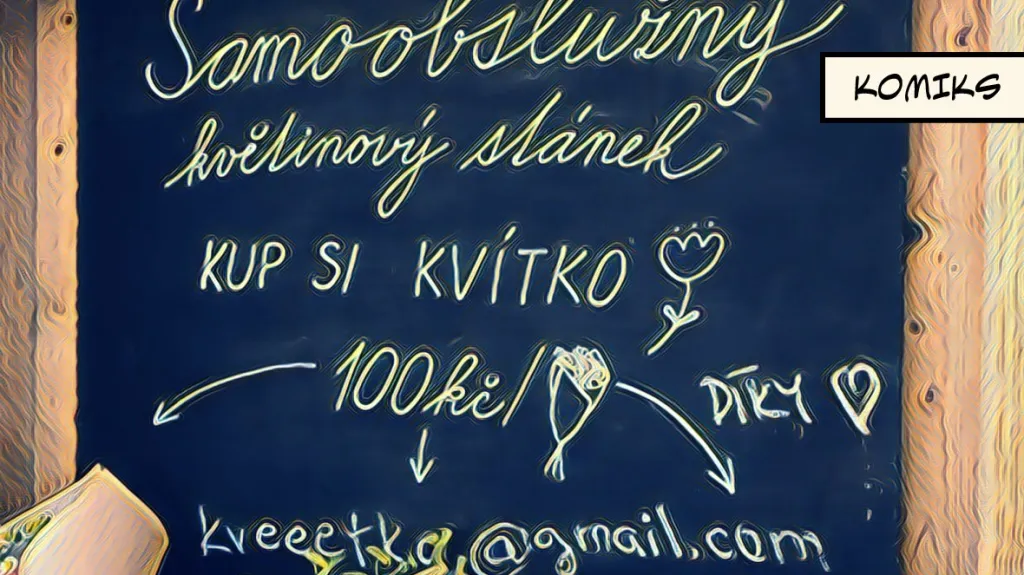 Samoobslužný
KOMIKS
květinový stánek
KUP SI KVÍTKO
100kč/
DÍKY
kveeetka@gmail.com